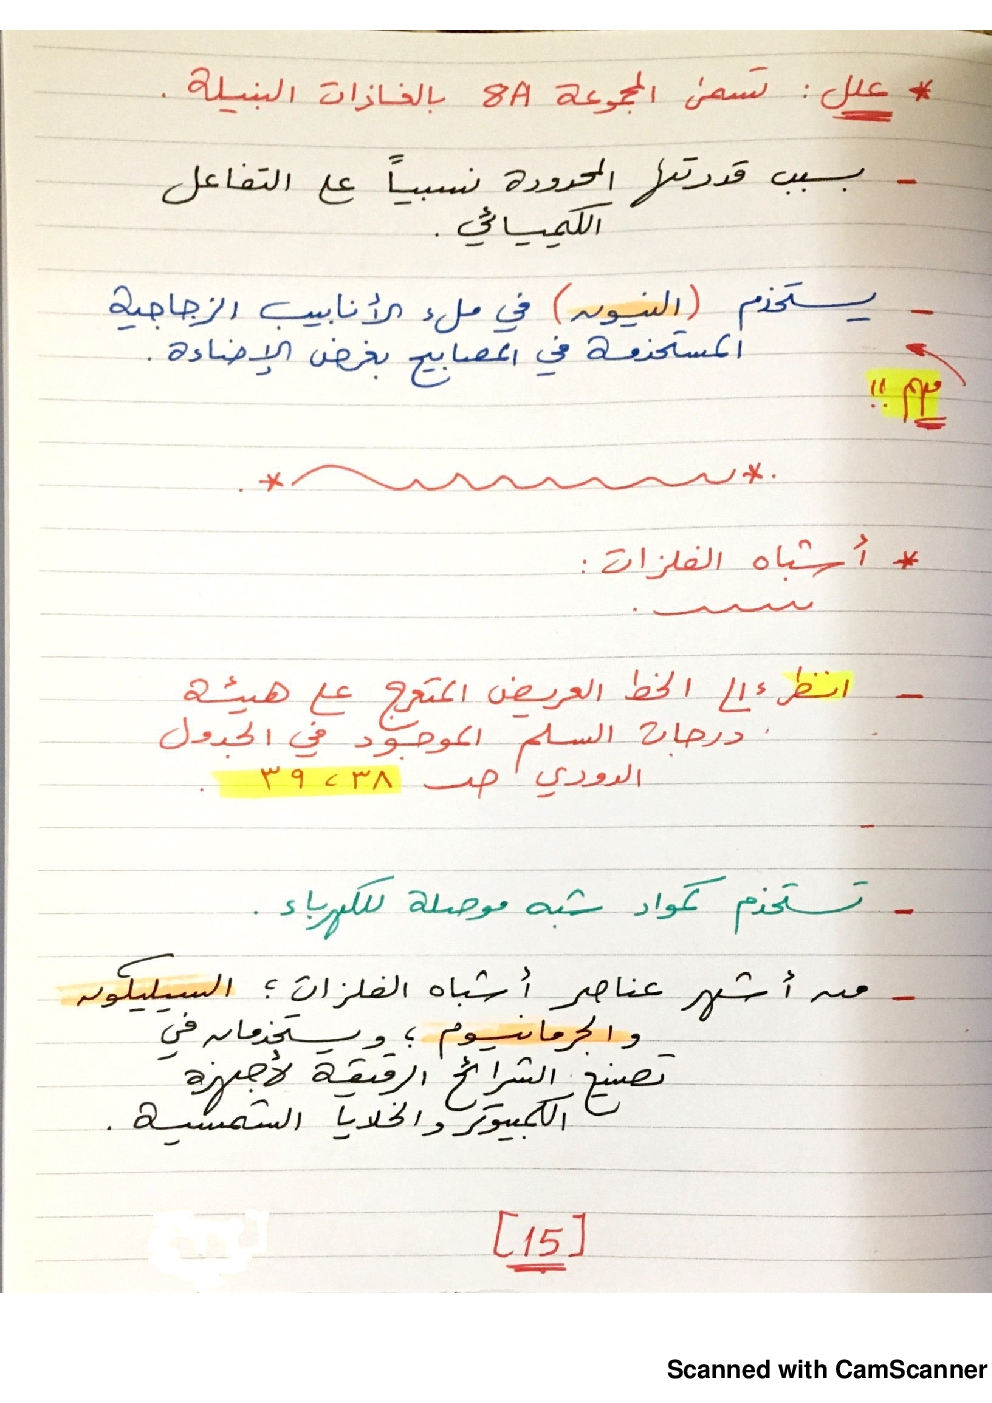 * علل : تسمى المجموعة 8A بالغازات النبيلة .
- بسبب قدرتها المحدودة نسبياً على التفاعل
الكيميائي .
- يستخدم (النيون) في ملء الأنابيب الزجاجية
المستخدمة في المصابيح بغرض الإضاءة .
مهم !!
* أشباه الفلزات :
- انظر إلى الخط العريض المتعرج على هيئة
درجات السلم الموجود في الجدول
الدوري صـ ٣٨ ، ٣٩ .
-
- تستخدم كمواد شبه موصلة للكهرباء .
- من أشهر عناصر أشباه الفلزات ؛ السيليكون
والجرمانيوم ؛ ويستخدمان في
تصنيع الشرائح الرقيقة لأجهزة
الكمبيوتر والخلايا الشمسية .
[15]
Scanned with CamScanner